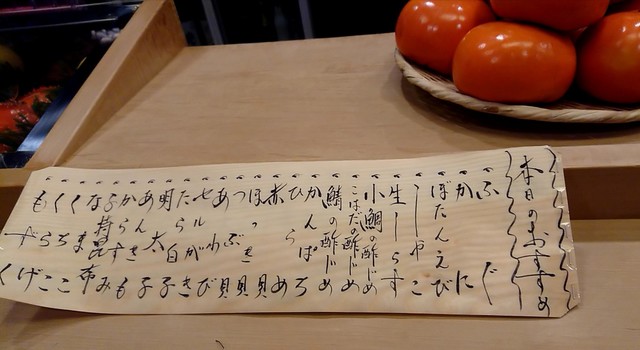 本日のおすすめ
ふぐ
かに
ぼたんえび
しゃこ
生しらす
小鯛の酢じめ
こはだの酢じめ
鯖の酢じめ
かんぱち
ひらめ
赤貝
ほっき貝
つぶ貝
あわび
セルがき
たら白子
明太子
あんきも
からすみ
子持昆布
なまこ
くちこ
くらげ
もずく